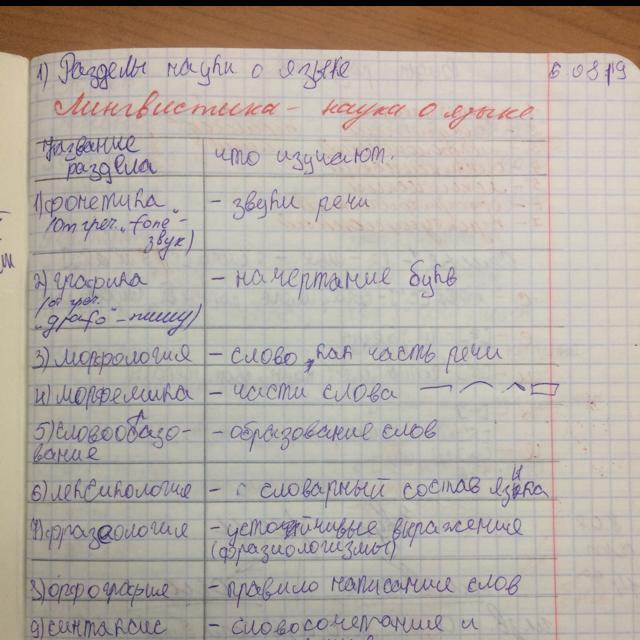 1) Разделы науки о языке
6 03 19
Лингвистика - наука о языке.
Название раздела
что изучают.
1) фонетика
- звуки речи
(от греч. "fone" -
звук)
2) графика
- начертание букв
(от греч.
"графо" - пишу)
3) морфология
- слово, как часть речи
4) морфемика
- части слова
5) словообразо-
- образование слов
вание
6) лексикология
- словарный состав языка
7) фразеология
- устойчивые выражения
(фразиологизмы)
8) орфография
- правило написание слов
9) синтаксис
- словосочетания и